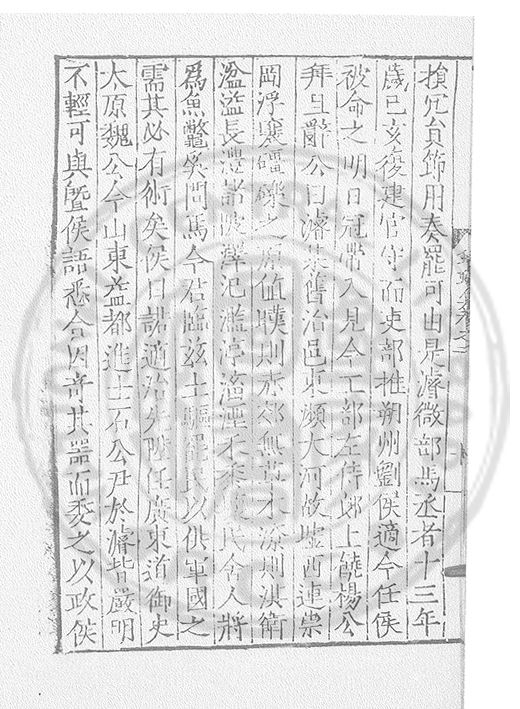 損冗員節用奏罷可由是濬微部馬丞者十三年
歲己亥復建官守而吏部推朔州劉侯適今任侯
被命之明日冠帶入見今工部左侍郎上饒楊公
拜且辭公曰濬某舊治邑東瀕大河故墟西連崇
岡浮壤礓礫之原值暵則赤郊無苗木潦則淇衛
溢長灃諸陂澤氾濫渟滀湮禾黍民舍人將
為魚鱉矣問焉今君臨茲土驅罷民以供軍國之
需其必有術矣侯曰諾適治先陟任廣東道御史
太原魏公今山東益都進士石公尹於濬皆嚴明
不輕可與暨侯語悉合因奇其器而委之以政侯